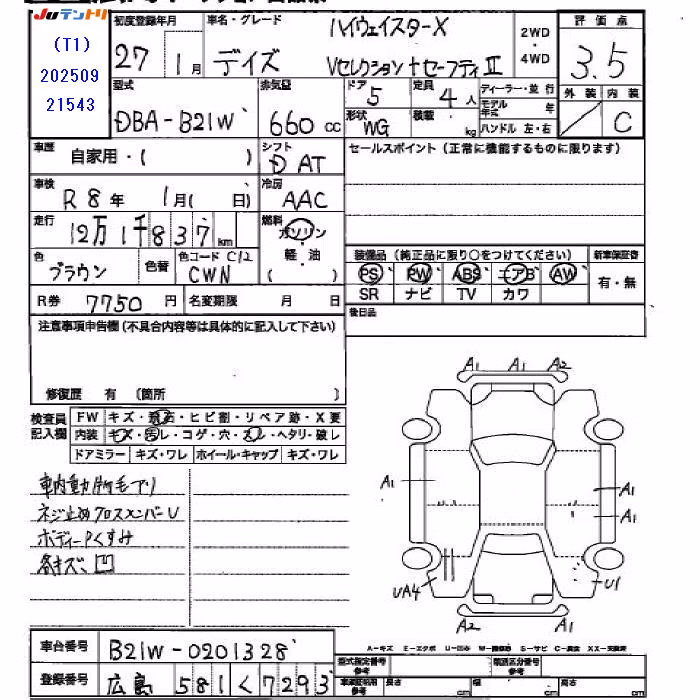 Juテントリ
(T1)
202509
21543
初度登録年月
27 1月
車名・グレード
ハイウェイスターX
デイズ Vセレクション+セーフティII
2WD
・
4WD
評価点
3.5
型式
DBA-B21W
排気量
660 cc
ドア
5
定員
4人
形状
WG
積載
kg
ディーラー・並行
モデル年式 年
ハンドル 左・右
外装 内装
C
車歴
自家用・( )
シフト
D AT
セールスポイント (正常に機能するものに限ります)
車検
R8年 1月( 日)
冷房
AAC
走行
12万1千837km
燃料
ガソリン
・
軽油
( )
色
ブラウン
色替
色コード C12
CWN
装備品 (純正品に限り○をつけてください)
新車保証書
PS PW ABS エアB AW
SR ナビ TV カワ
有・無
R券 7750円
名変期限 月 日
後日品
注意事項申告欄(不具合内容等は具体的に記入して下さい)
修復歴 有 〔箇所 〕
検査員
記入欄
FW キズ・飛石・ヒビ割・リペア跡・X要
内装 キズ・汚レ・コゲ・穴・スレ・ヘタリ・破レ
ドアミラー キズ・ワレ ホイール・キャップ キズ・ワレ
車内動物毛アリ
ネジ止めクロスメンバーU
ボディーPくすみ
各キズ、凹
A1 A1 A2
A1
A1
A1
UA4 U1
A2 A1
A-キズ E-エクボ U-凹み W-補修跡 S-サビ C-腐食 XX-交換済
車台番号 B21W-0201328
登録番号 広島 581 く 7293
型式指定番号
参考
類別区分番号
参考
車検証利用
参考
長さ cm 幅 cm 高さ cm